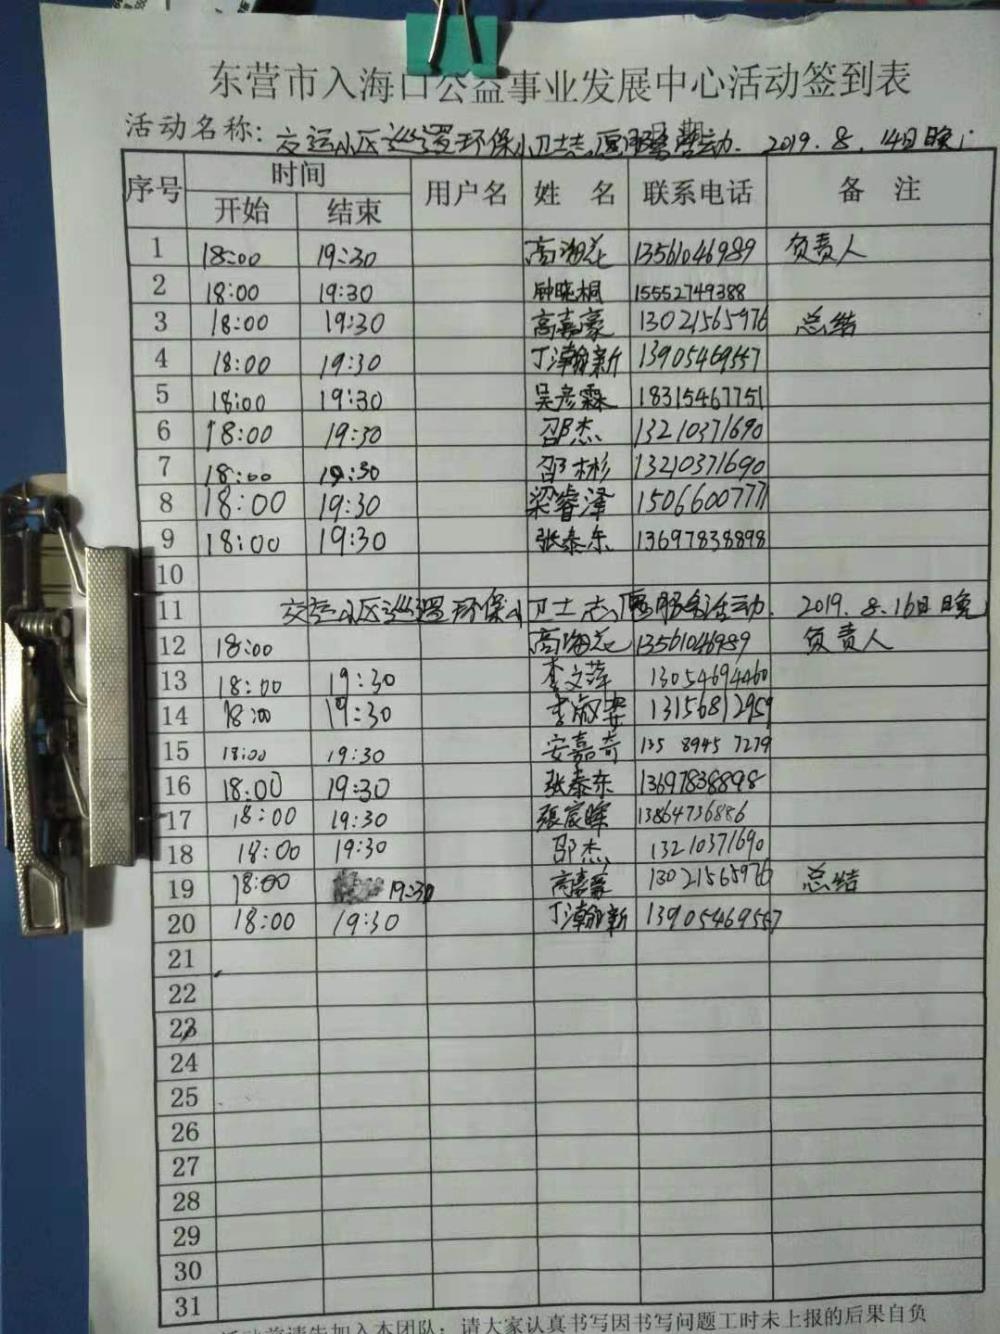 东营市入海口公益事业发展中心活动签到表
活动名称: 交运小区巡逻环保小卫士志愿服务活动. 2019.8.14日晚
序号 时间 用户名 姓 名 联系电话 备 注
开始 结束
1 18:00 19:30 高海花 13561046989 负责人
2 18:00 19:30 钟晓桐 15552749388
3 18:00 19:30 高嘉豪 13021565976 总结
4 18:00 19:30 丁瀚新 13905469557
5 18:00 19:30 吴彦霖 18315467751
6 18:00 19:30 邵杰 13210371690
7 18:00 19:30 邵彬 13210371690
8 18:00 19:30 梁睿泽 1506600777
9 18:00 19:30 张泰东 13697838898
10
11 交运小区巡逻环保小卫士志愿服务活动. 2019.8.16日晚
12 18:00 高海花 13561046989 负责人
13 18:00 19:30 李文萍 13054694460
14 18:00 19:30 李淑 13156812959
15 18:00 19:30 安嘉奇 135 8945 7279
16 18:00 19:30 张泰东 13697838898
17 18:00 19:30 張宸暉 13864736886
18 18:00 19:30 邵杰 13210371690
19 18:00 19:30 高嘉豪 13021565976 总结
20 18:00 19:30 丁瀚新 13905469557
21
22
23
24
25
26
27
28
29
30
31
活动前请先加入本团队；请大家认真书写因书写问题工时未上报的后果自负